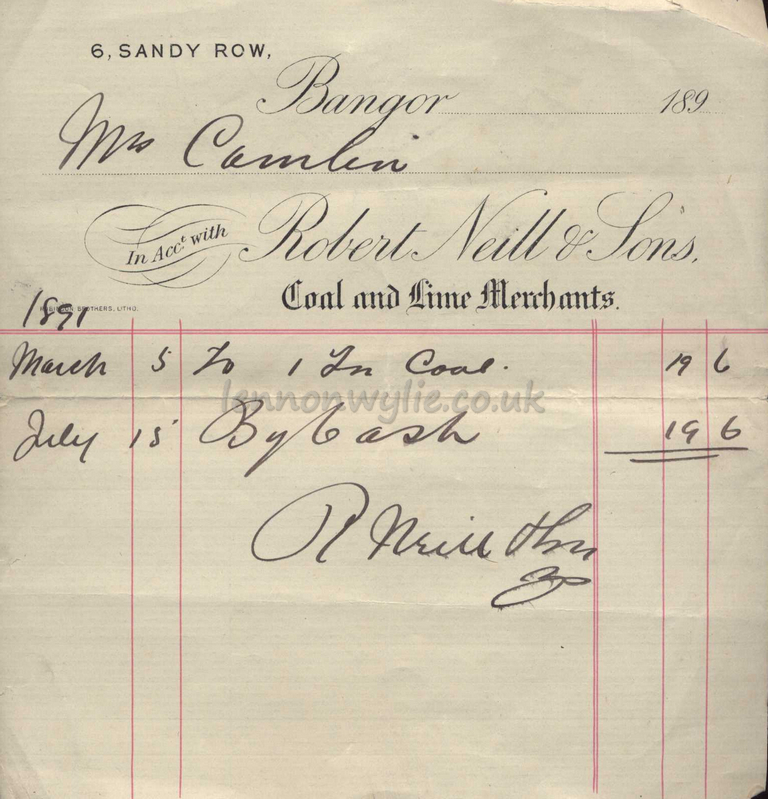 6, SANDY ROW,
Bangor 189
Mrs Camlin
In Acct. with Robert Neill & Sons,
Coal and Lime Merchants.
1891
ROBINSON BROTHERS, LITHO.
March 5 To 1 Tn Coal. 19 6
lennonwylie.co.uk
July 15 By Cash 19 6
R Neill & Sons